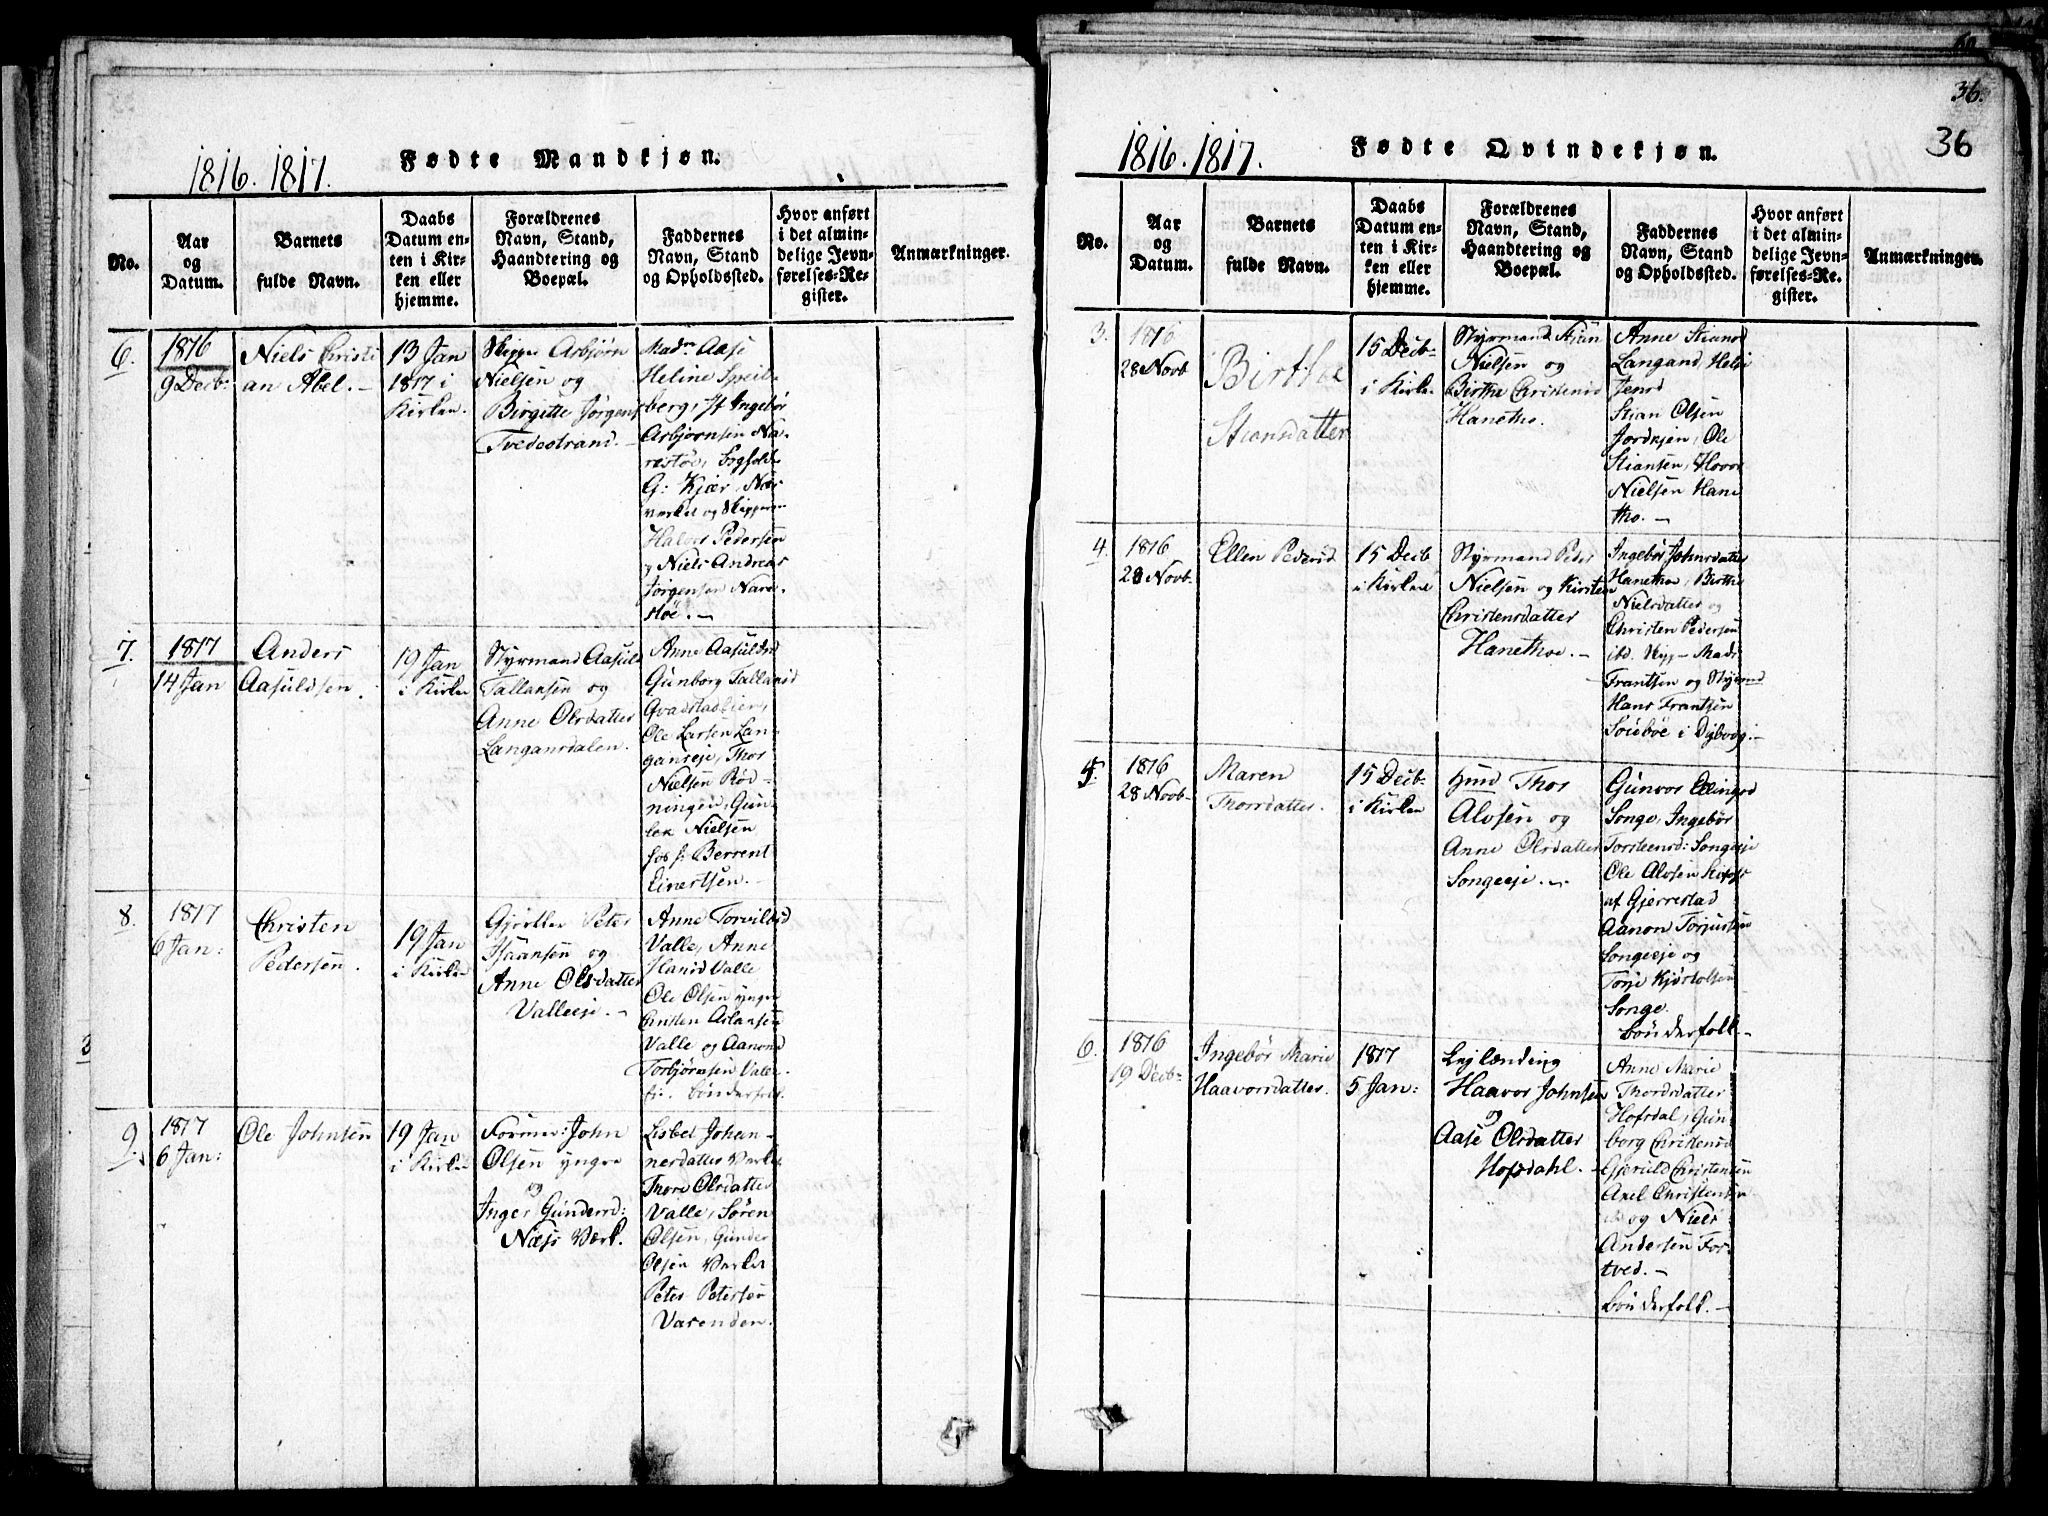 1816. 1817. Fødte Mandkjøn.
No.
Aar
og
Datum.
Barnets
fulde Navn.
Daabs
Datum en-
ten i Kir-
ken eller
hjemme.
Forældrenes
Navn, Stand,
Haandtering og
Boepæl.
Faddernes
Navn, Stand
og Opholdssted.
Hvor anført
i det almin-
delige Jevn-
førelses-Re-
gister.
Anmærkninger.
6.
1816
9 Decb:
Niels Christi
an Abel. -
13 Jan
1817 i
Kirken.
Skipp Arbjørn
Nielsen og
Birgitte Jørgens
Tvedestrand. -
Madm Aase
Heline
berg, Jf Ingebør
Arbjørnsen Na-
restøe,
G: Kjær, Næs
værket og Skipperne
Halvor Pedersen
og Niels Andreas
Jørgensen Nare-
støe. -
7.
1817
14 Jan
Anders
Aasuldsen.
19 Jan
i Kirken
Styrmand Aasuld
Tallaksen og
Anne Olsdatter
Langangsdalen.
Anne Aasuldsd
Gunborg Tallaksd
Ole Larsen Lan-
gangseje, Thor
Nielsen Rød-
ningen, Gun-
Nielsen
Berrent
Einertsen. -
8.
1817
6 Jan:
Christen
Pedersen.
19 Jan
i Kirken
Gjørtler Peter
Isaaksen og
Anne Olsdatter
Valleeje. -
Anne Torvildsd
Valle, Anne
Hansd Valle
Ole Olsen yngre
Christen Aslaksen
Valle og Aanond
Torbjørnsen Valle-
Bønderfolk.
9.
1817
6 Jan:
Ole Johnsen
19 Jan
i Kirken
Former: John
Olsen yngre
og
Inger Gundersd:
Næss Værk.
Lisbet Johan-
nesdatter Værket
Thore Olsdatter
Valle, Søren
Olsen, Gunder
Olsen Værket
Peter Petersen
Varenden.
36.
36
1816. 1817. Fødte Qvindekjøn.
No.
Aar
og
Datum.
Barnets
fulde Navn.
Daabs
Datum en-
ten i Kir-
ken eller
hjemme.
Forældrenes
Navn, Stand,
Haandtering og
Boepæl.
Faddernes
Navn, Stand
og Opholdssted.
Hvor anført
i det almin-
delige Jevn-
førelses-Re-
gister.
Anmærkninger.
3.
1816
28 Novb
Birthe
Stiansdatter
15 Decb-
i Kirken
Styrmand Stian
Nielsen og
Birthe Christensd
Hanetho.
Anne Stiansd
Langang,
Stian Olsen
Ole
Stiansen,
Nielsen Hane
tho. -
4.
1816
28 Novb-
Ellen Pedersd
15 Decb
i Kirken
Styrmand Peder
Nielsen og Kirsten
Christensdatter
Hanethoe. -
Ingebør Johnsdatter
Hanethoe, Birthe
Nielsdatter og
Christen Pedersen
ibd. Skip- Mads
Frantsen og Styrmd
Hans Frantsen
Soiebøe i Dybvog. -
5.
1816
28 Novb-
Maren
Thorsdatter.
15 Decb-
i Kirken
Hmd Thor
Alvsen og
Anne Olsdatter
Songeeje. -
Gunvor Ellingsd
Songe, Ingebør
Torstensd: Songeeje
Ole Alvsen
af Gjerrestad
Aanon Torjussen
Songeeje og
Torje Kjøstolsen
Songe.
Bønderfolk. -
6.
1816
19 Decb-
Ingebør Marie
Haavorsdatter.
1817
5 Jan:
Lejlænding
Haavor Johnsen
og
Aase Olsdatter
Hofsdahl. -
Anne Marie
Thordsdatter
Hofsdal, Gun
borg Christensd
Gjeruld Christensen
Axel Christensen
og Niels
Andersen For-
tved. -
Bønderfolk. -